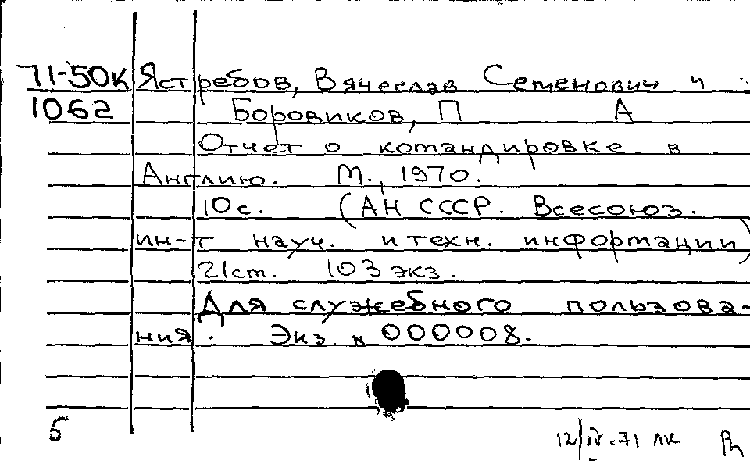 71-50К Ястребов, Вячеслав Семенович и
1062 Боровиков, П А
Отчет о командировке в
Англию. М., 1970.
10с. (АН СССР. Всесоюз.
ин-т науч. и техн. информации)
21см. 103 экз.
Для служебного пользова-
ния. Экз. № 000008.
5
12/IV-71